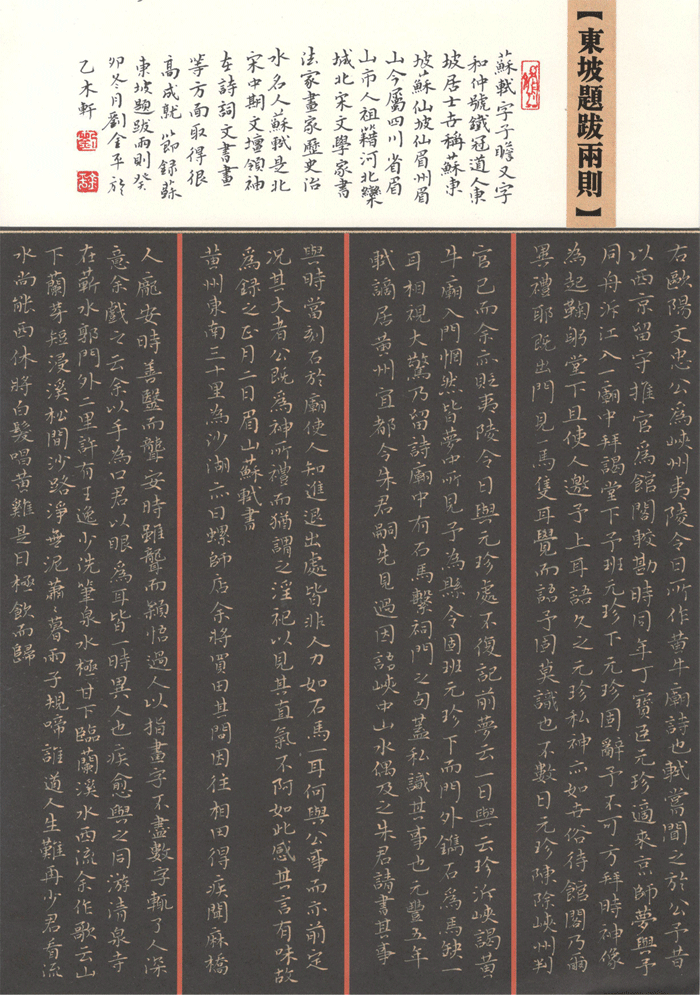 【東坡題跋兩則】
蘇軾字子瞻又字
和仲號鐵冠道人東
坡居士世稱蘇東
坡蘇仙坡仙眉州眉
山今屬四川省眉
山市人祖籍河北欒
城北宋文學家書
法家畫家歷史治
水名人蘇軾是北
宋中期文壇領袖
在詩詞文書畫
等方面取得很
高成就節錄蘇
東坡題跋兩則癸
卯冬月劉全平於
乙木軒
右歐陽文忠公為峽州夷陵令日所作黃牛廟詩也軾嘗聞之於公予昔
以西京留守推官為館閣較勘時同年丁寶臣元珍適來京師夢與予
同舟泝江入一廟中拜謁堂下予班元珍下元珍固辭予不可方拜時神像
為起鞠躬堂下且使人邀予上耳語久之元珍私神亦如世俗待館閣乃爾
異禮耶既出門見一馬隻耳覺而語予固莫識也不數日元珍陳除峽州判
官已而余亦貶夷陵令日與元珍處不復記前夢云一日與云珍泝峽謁黃
牛廟入門惘然皆夢中所見予為縣令固班元珍下而門外鐫石為馬缺一
耳相視大驚乃留詩廟中有石馬繫祠門之句蓋私識其事也元豐五年
軾謫居黃州宜都令朱君嗣先見過因語峽中山水偶及之朱君請書其事
與時當刻石於廟使人知進退出處皆非人力如石馬一耳何與公事而亦前定
況其大者公既為神所禮而猶謂之淫祀以見其直氣不阿如此感其言有味故
為錄之正月二日眉山蘇軾書
黃州東南三十里為沙湖亦曰螺師店余將買田其間因往相田得疾聞麻橋
人龐安時善醫而聾安時雖聾而穎悟過人以指畫字不盡數字輒了人深
意余戲之云余以手為口君以眼為耳皆一時異人也疾愈與之同游清泉寺
在蘄水郭門外二里許有王逸少洗筆泉水極甘下臨蘭溪水西流余作歌云山
下蘭芽短浸溪松間沙路淨無泥蕭暮雨子規啼誰道人生難再少君看流
水尚能西休將白髮唱黃雞是日極飲而歸